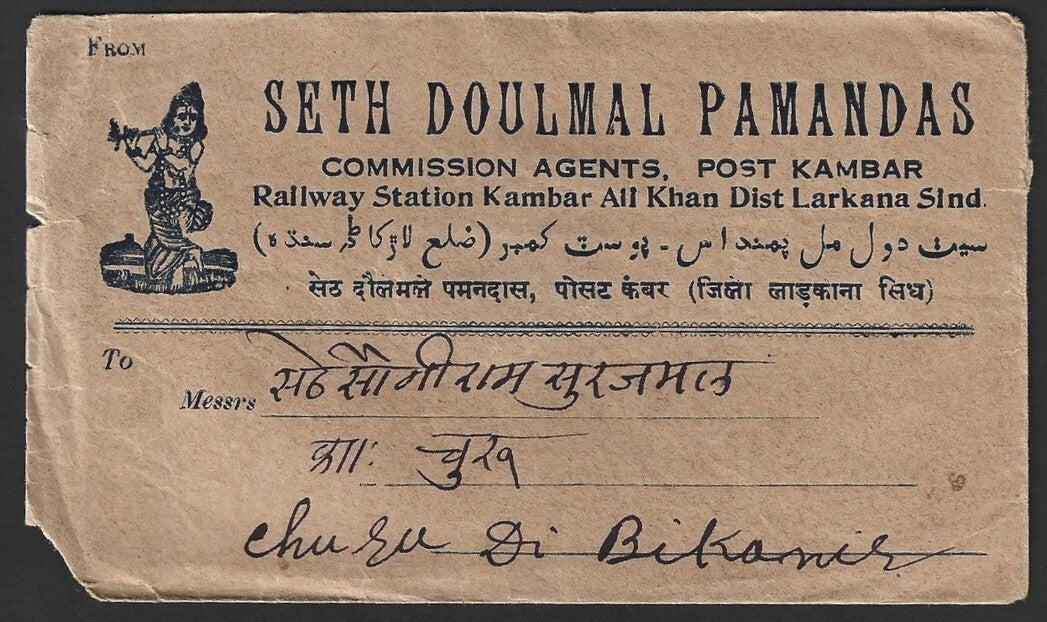 FROM
SETH DOULMAL PAMANDAS
COMMISSION AGENTS, POST KAMBAR
Railway Station Kambar Ali Khan Dist Larkana Sind.
سيٺ دولمل پمنداس - پوسٽ کمبر (ضلع لاڙکاڻہ سندہ)
सेठ दौलमल पमनदास, पोसट कंबर (जिला लाड़काना सिंध)
To
Messrs सेठ सौगीराम सुरजमल
चुरू
Churu Di Bikanir